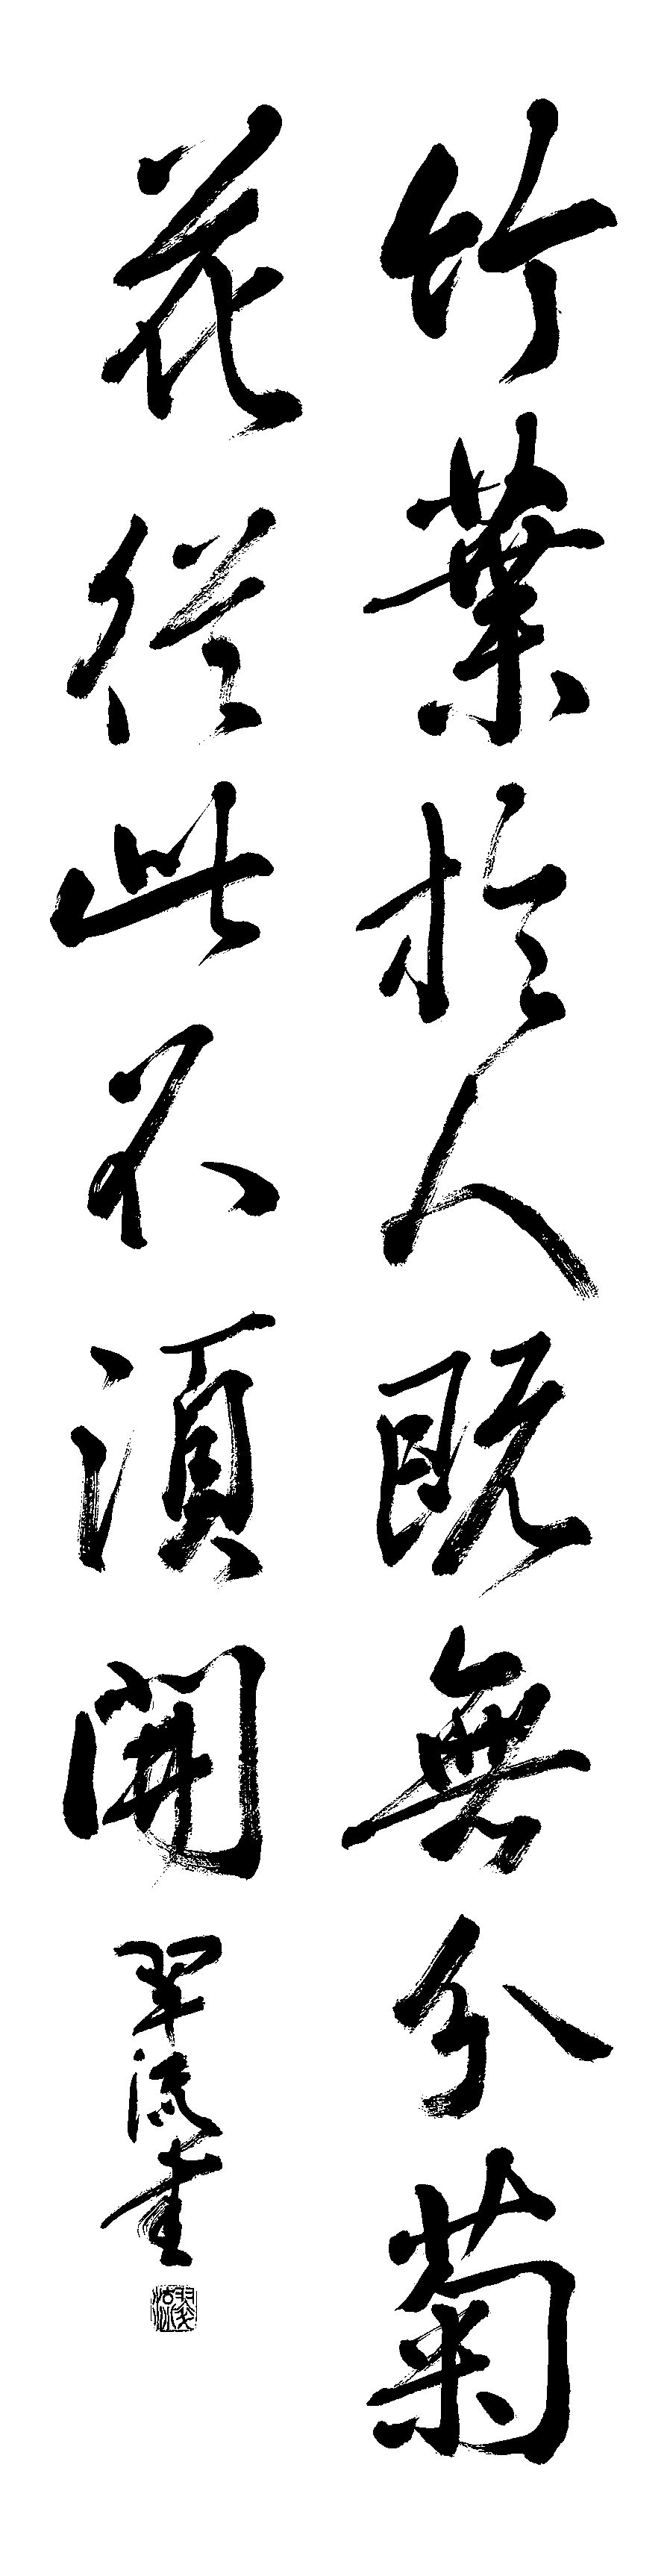 竹葉於人既無分菊
花從此不須開
翠流書